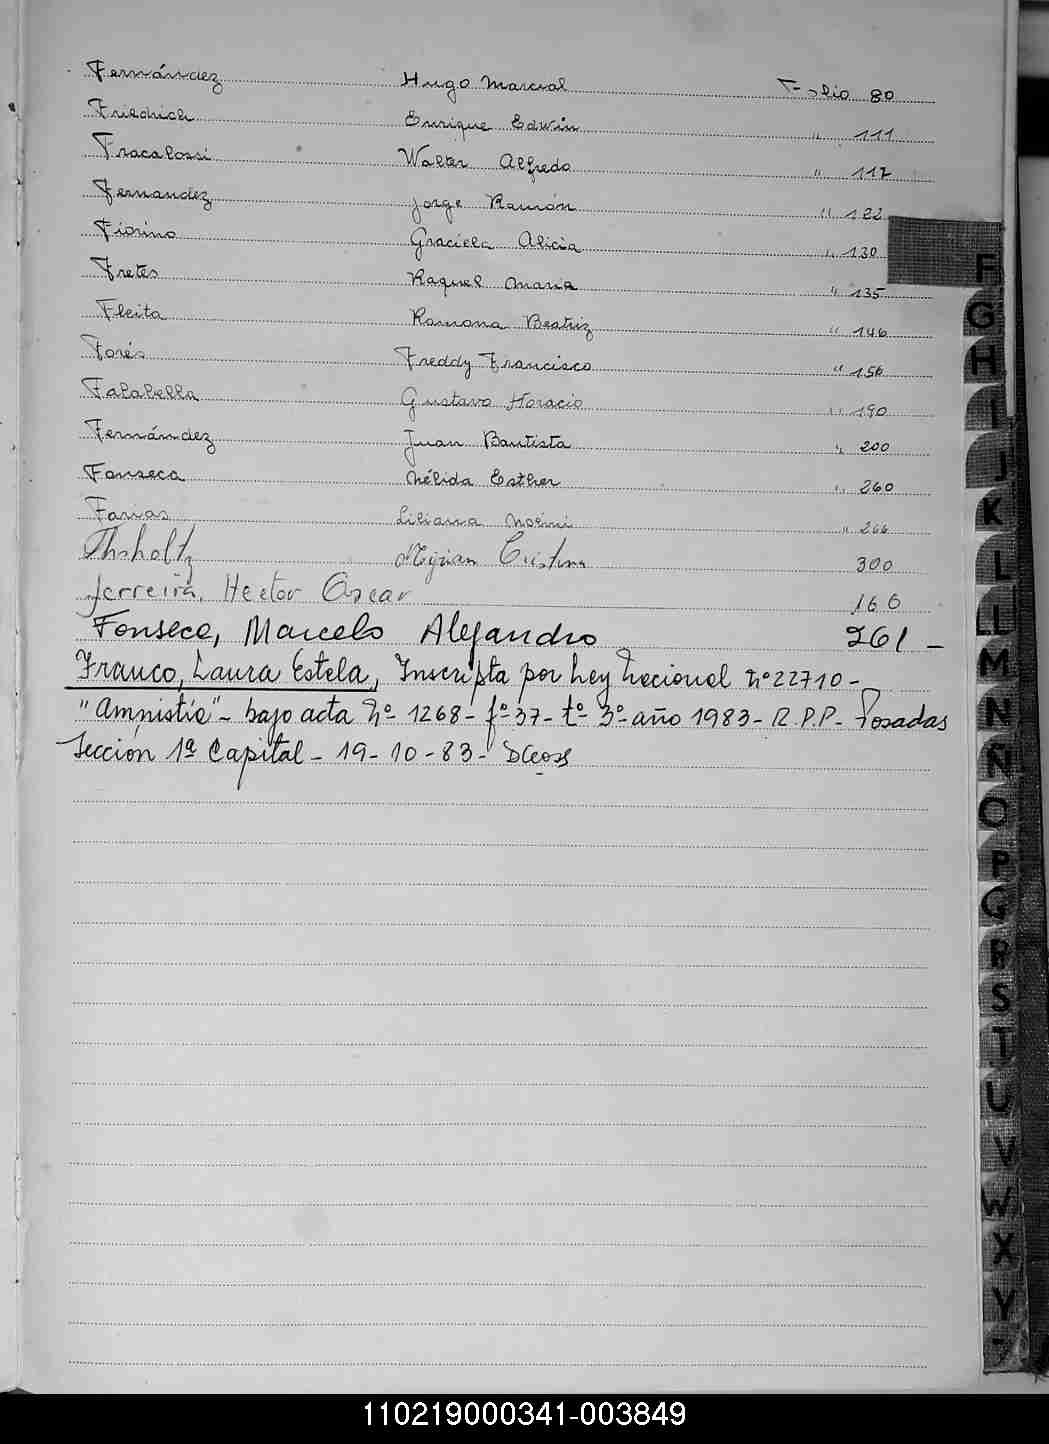 Fernández Hugo Marcial Folio 80
Friedrich Enrique Edwin " 111
Fracalossi Walter Alfredo " 117
Fernandez Jorge Ramón " 122
Fiorino Graciela Alicia " 130
Fretes Raquel Maria " 135
Fleita Ramona Beatriz " 146
Forés Freddy Francisco " 156
Falabella Gustavo Horacio " 190
Fernández Juan Bautista " 200
Fonseca Nélida Esther " 260
Farias Liliana Noemi " 266
Mirian Cristina 300
Ferreira, Hector Oscar 166
Fonseca, Marcelo Alejandro 261 -
Franco, Laura Estela, Inscripta por Ley Nacional Nº 22710 -
"Amnistía" - bajo acta Nº 1268 - fº 37 - tº 3º - año 1983 - R.P.P. - Posadas
Sección 1ª Capital - 19 - 10 - 83 -
F
G
H
I
J
K
L
LL
M
N
Ñ
O
P
Q
R
S
T
U
V
W
X
Y
110219000341-003849